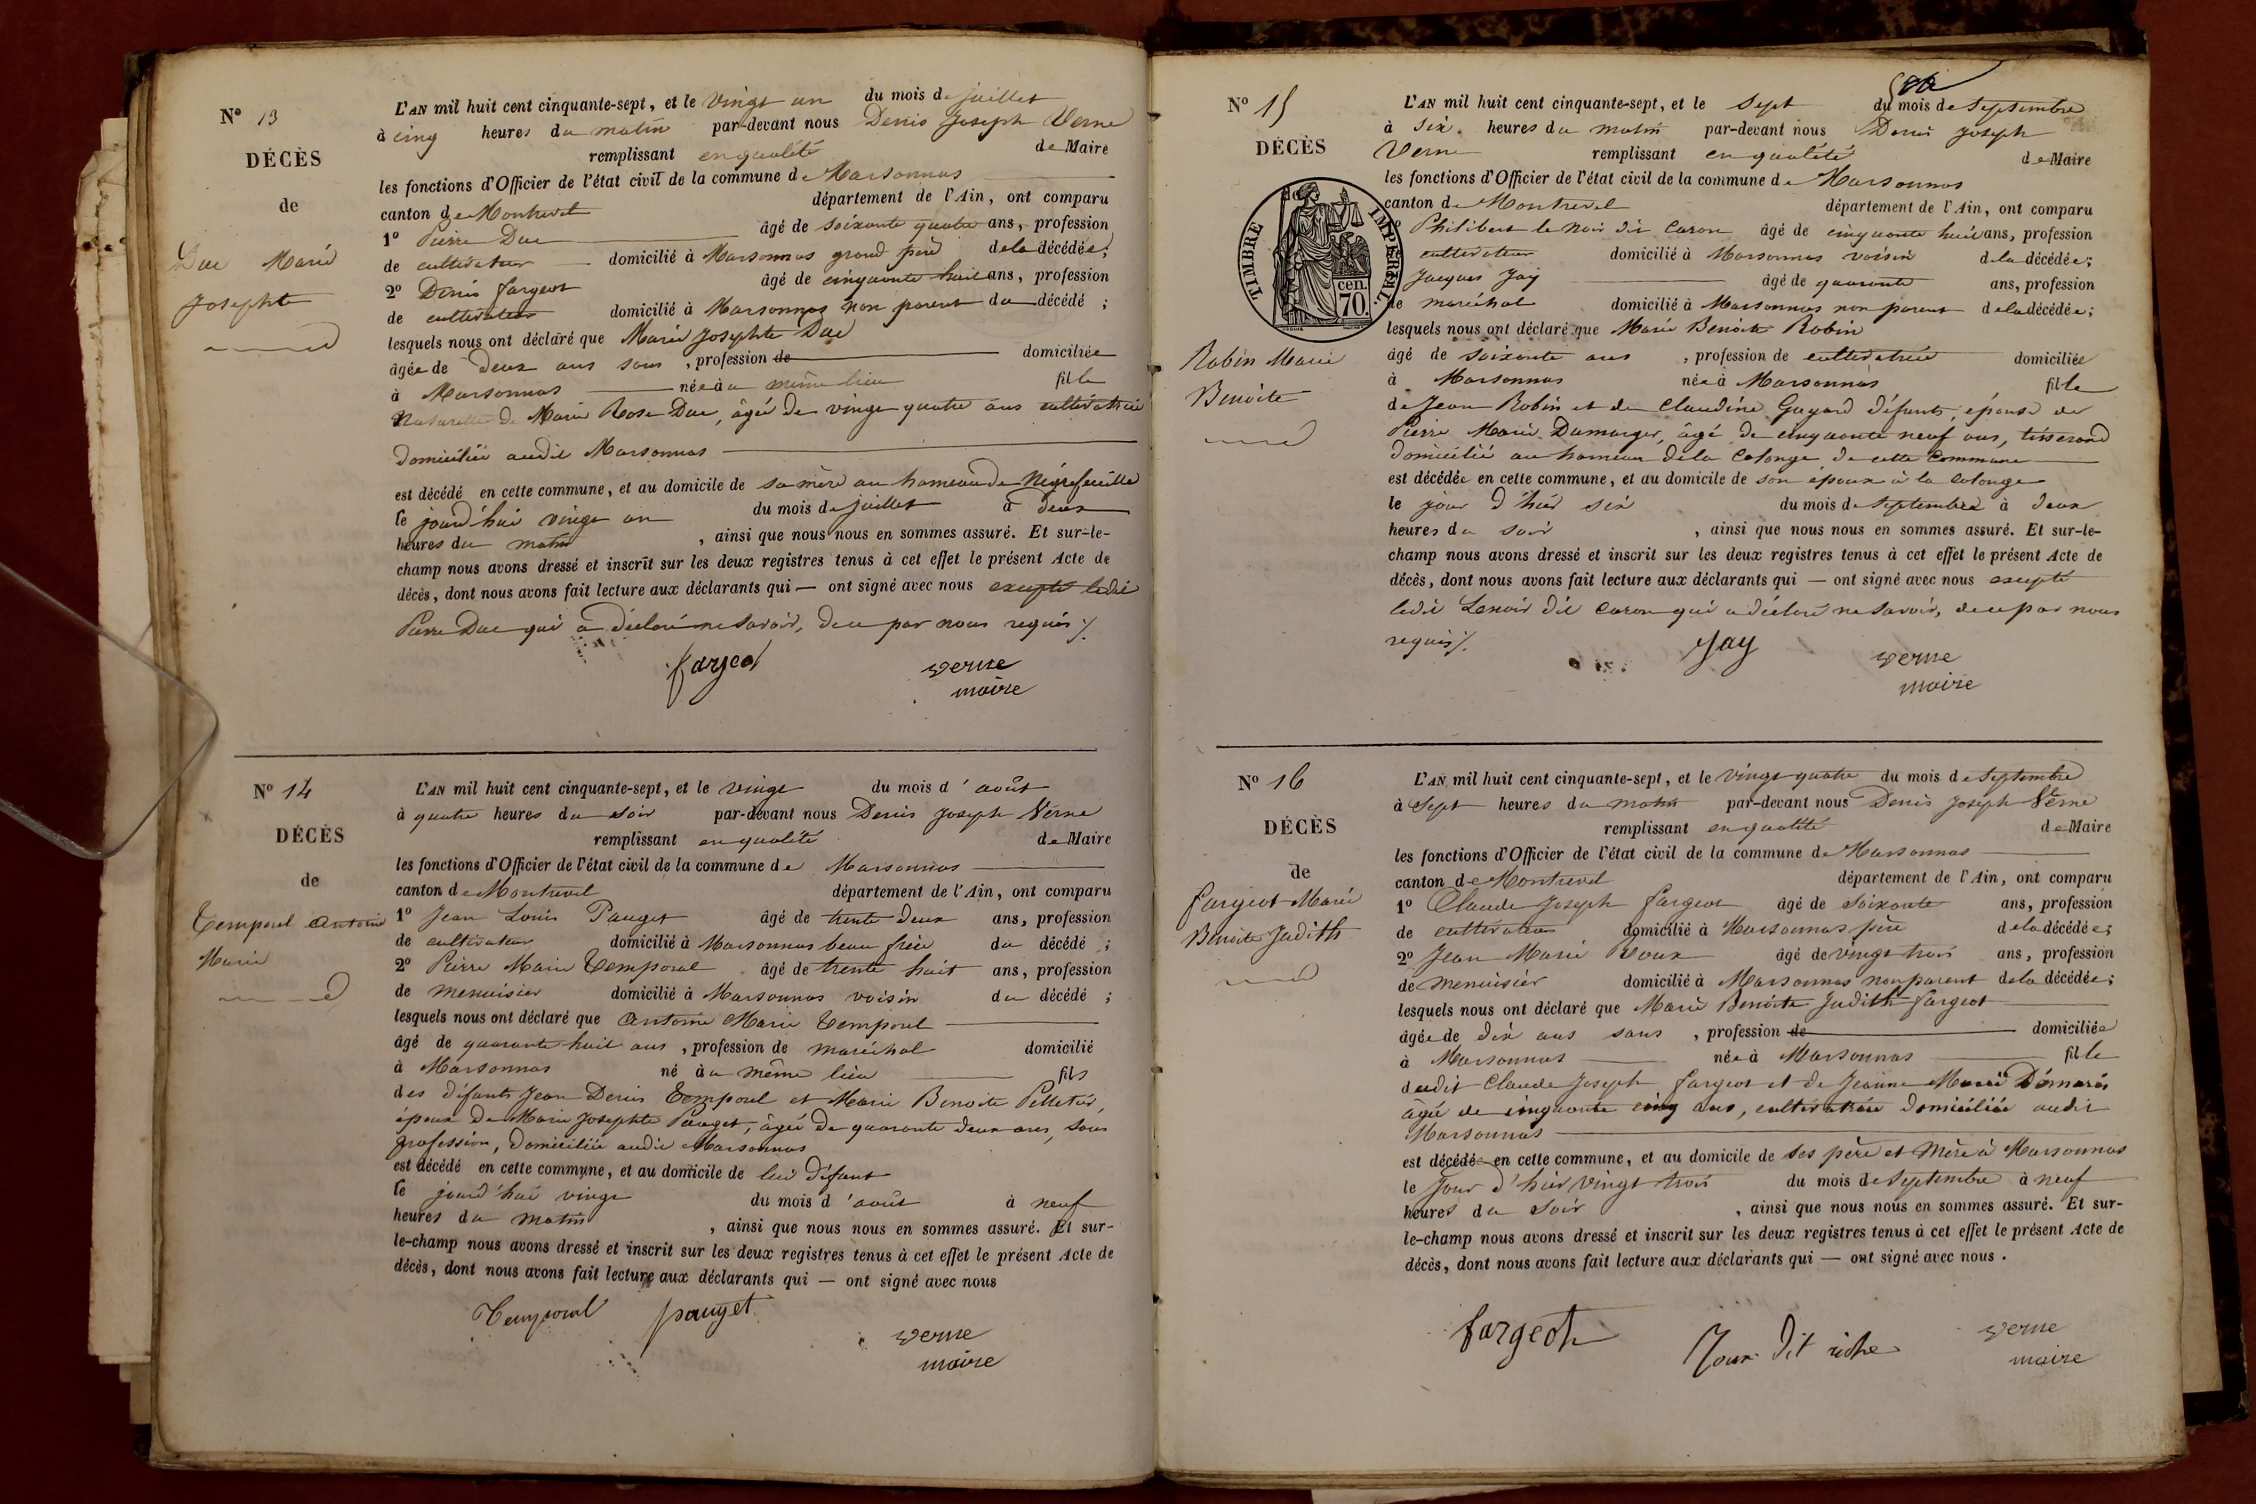 N° 13
DÉCÈS
de
Duc Marie
Josephte
L'AN mil huit cent cinquante-sept, et le vingt un du mois de juillet
à cinq heures du matin par-devant nous Denis Joseph Verne
remplissant en qualité de Maire
les fonctions d'Officier de l'état civil de la commune de Marsonnas
canton de Montrevel département de l'Ain, ont comparu
1° Pierre Duc âgé de soixante quatre ans, profession
de cultivateur domicilié à Marsonnas grand père de la décédée;
2° Denis fargeot âgé de cinquante huit ans, profession
de cultivateur domicilié à Marsonnas non parent du décédé ;
lesquels nous ont déclaré que Marie Josephte Duc
âgée de deux ans sans , profession de domiciliée
à Marsonnas née àu même lieu fille
naturelle de Marie Rose Duc, âgée de vingt quatre ans cultivatrice
domiciliée audit Marsonnas
est décédé en cette commune, et au domicile de sa mère au hameau de Négrefeuille
le jourd'hui vingt un du mois de juillet à deux
heures du matin , ainsi que nous nous en sommes assuré. Et sur-le-
champ nous avons dressé et inscrit sur les deux registres tenus à cet effet le présent Acte de
décès, dont nous avons fait lecture aux déclarants qui — ont signé avec nous excepté ledit
Pierre Duc qui a déclaré ne savoir, de ce par nous requis ⁒
fargeot verne
maire
N° 14
DÉCÈS
de
Temporal Antoine
Marie
L'AN mil huit cent cinquante-sept, et le vingt du mois d'août
à quatre heures du soir par-devant nous Denis Joseph Verne
remplissant en qualité de Maire
les fonctions d'Officier de l'état civil de la commune de Marsonnas
canton de Montrevel département de l'Ain, ont comparu
1° Jean Louis Pauget âgé de trente deux ans, profession
de cultivateur domicilié à Marsonnas beau frère du décédé ;
2° Pierre Marie Temporal âgé de trente huit ans, profession
de menuisier domicilié à Marsonnas voisin du décédé ;
lesquels nous ont déclaré que Antoine Marie Temporal
âgé de quarante huit ans , profession de maréchal domicilié
à Marsonnas né àu même lieu fils
des défunts Jean Denis Temporal et Marie Benoite Pelletier,
époux de Marie Josephte Pauget, âgée de quarante deux ans, sans
profession, domiciliée audit Marsonnas
est décédé en cette commune, et au domicile de lui défunt
le jourd'hui vingt du mois d'août à neuf
heures du matin , ainsi que nous nous en sommes assuré. Et sur-
le-champ nous avons dressé et inscrit sur les deux registres tenus à cet effet le présent Acte de
décès, dont nous avons fait lecture aux déclarants qui — ont signé avec nous
Temporal pauget
verne
maire
N° 15
DÉCÈS
de
TIMBRE IMPÉRIAL.
70. cen.
Robin Marie
Benoite
L'AN mil huit cent cinquante-sept, et le sept du mois de septembre
à six heures du matin par-devant nous Denis Joseph
Verne remplissant en qualité de Maire
les fonctions d'Officier de l'état civil de la commune de Marsonnas
canton de Montrevel département de l'Ain, ont comparu
Philibert le noir dit Caron âgé de cinquante huit ans, profession
cultivateur domicilié à Marsonnas voisin de la décédée;
Jacques Jay âgé de quarante ans, profession
de maréchal domicilié à Marsonnas non parent de la décédée;
lesquels nous ont déclaré que Marie Benoite Robin
âgé de soixante ans , profession de cultivatrice domiciliée
à Marsonnas née à Marsonnas fille
de Jean Robin et de Claudine Guyard défunts, épouse de
Pierre Marie Damarger, âgé de cinquante neuf ans, tisserand
domicilié au hameau de la Colonge de cette commune
est décédée en cette commune, et au domicile de son époux à la Colonge
le jour d'hier six du mois de septembre à deux
heures du soir , ainsi que nous nous en sommes assuré. Et sur-le-
champ nous avons dressé et inscrit sur les deux registres tenus à cet effet le présent Acte de
décès, dont nous avons fait lecture aux déclarants qui — ont signé avec nous excepté
ledit Lenoir dit Caron qui a déclaré ne savoir, de ce par nous
requis ⁒
Jay verne
maire
N° 16
DÉCÈS
de
fargeot Marie
Benoite Judith
L'AN mil huit cent cinquante-sept, et le vingt quatre du mois de septembre
à sept heures du matin par-devant nous Denis Joseph Verne
remplissant en qualité de Maire
les fonctions d'Officier de l'état civil de la commune de Marsonnas
canton de Montrevel département de l'Ain, ont comparu
1° Claude Joseph fargeot âgé de soixante ans, profession
de cultivateur domicilié à Marsonnas père de la décédée;
2° Jean Marie Roux âgé de vingt trois ans, profession
de menuisier domicilié à Marsonnas non parent de la décédée;
lesquels nous ont déclaré que Marie Benoite Judith fargeot
âgée de dix ans sans , profession de domiciliée
à Marsonnas née à Marsonnas fille
dudit Claude Joseph fargeot et de Jeanne Marie Démarés
âgée de cinquante cinq ans, cultivatrice domiciliée audit
Marsonnas
est décédé en cette commune, et au domicile de ses père et mère à Marsonnas
le jour d'hier vingt trois du mois de septembre à neuf
heures du soir , ainsi que nous nous en sommes assuré. Et sur-
le-champ nous avons dressé et inscrit sur les deux registres tenus à cet effet le présent Acte de
décès, dont nous avons fait lecture aux déclarants qui — ont signé avec nous .
fargeot Roux dit riche verne
maire